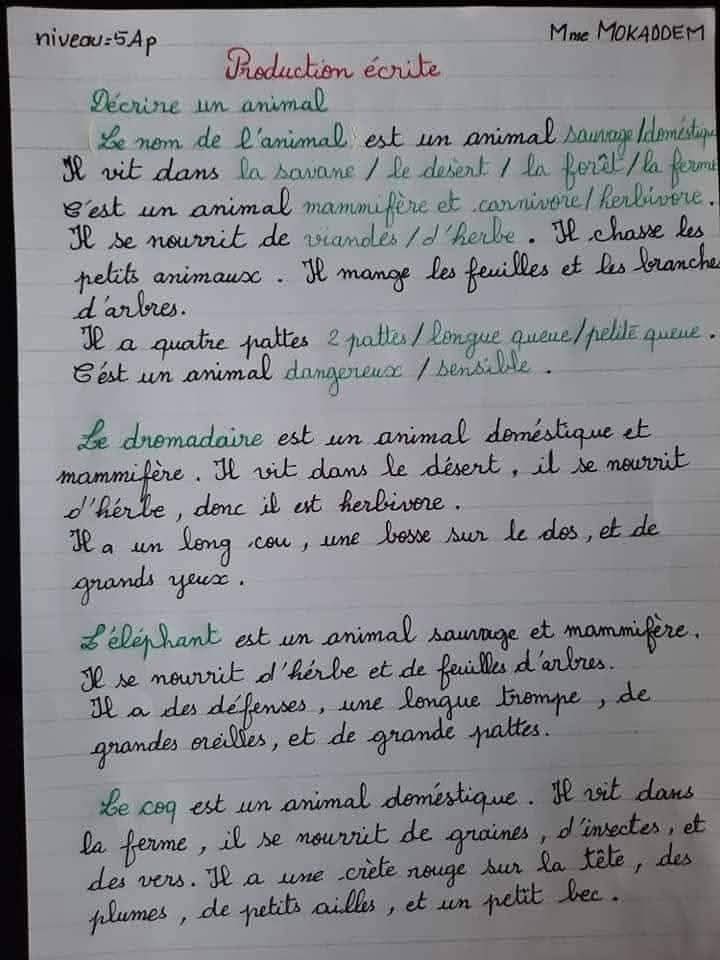 niveau=5Ap
Mme MOKADDEM
Production écrite
Décrire un animal
(Le nom de l'animal) est un animal sauvage/doméstique
Il vit dans la savane / le désert / la forêt/la ferme
C'est un animal mammifère et carnivore/herbivore.
Il se nourrit de viandes/d'herbe. Il chasse les
petits animaux. Il mange les feuilles et les branches
d'arbres.
Il a quatre pattes 2 pattes/longue queue/petite queue.
C'ést un animal dangereux /sensible.
Le dromadaire est un animal doméstique et
mammifère. Il vit dans le désert, il se nourrit
d'hérbe, donc il est herbivore.
Il a un long cou, une bosse sur le dos, et de
grands yeux.
L'éléphant est un animal sauvage et mammifère.
Il se nourrit d'hérbe et de feuilles d'arbres.
Il a des défenses, une longue trompe, de
grandes oreilles, et de grande pattes.
Le coq est un animal doméstique. Il vit dans
la ferme, il se nourrit de graines, d'insectes, et
des vers. Il a une crète rouge sur la tête, des
plumes, de petits ailles, et un petit bec.